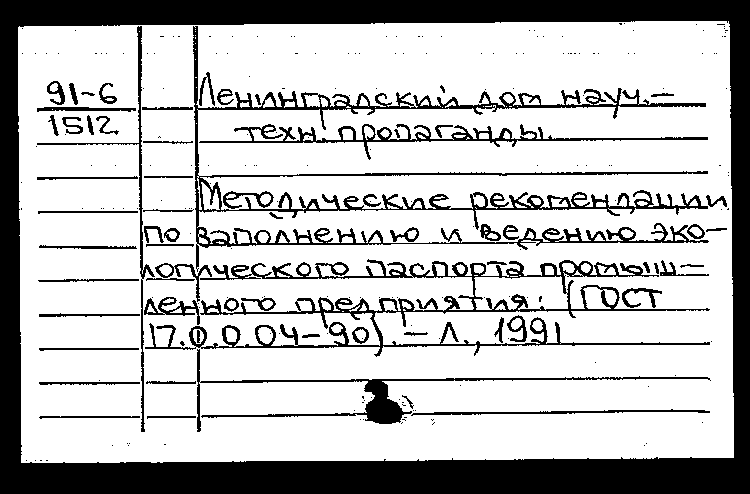 91-6
1512
Ленинградский дом науч.-
техн. пропаганды.
Методические рекомендации
по заполнению и ведению эко-
логического паспорта промыш-
ленного предприятия: (ГОСТ
17.0.0.04-90). - Л., 1991